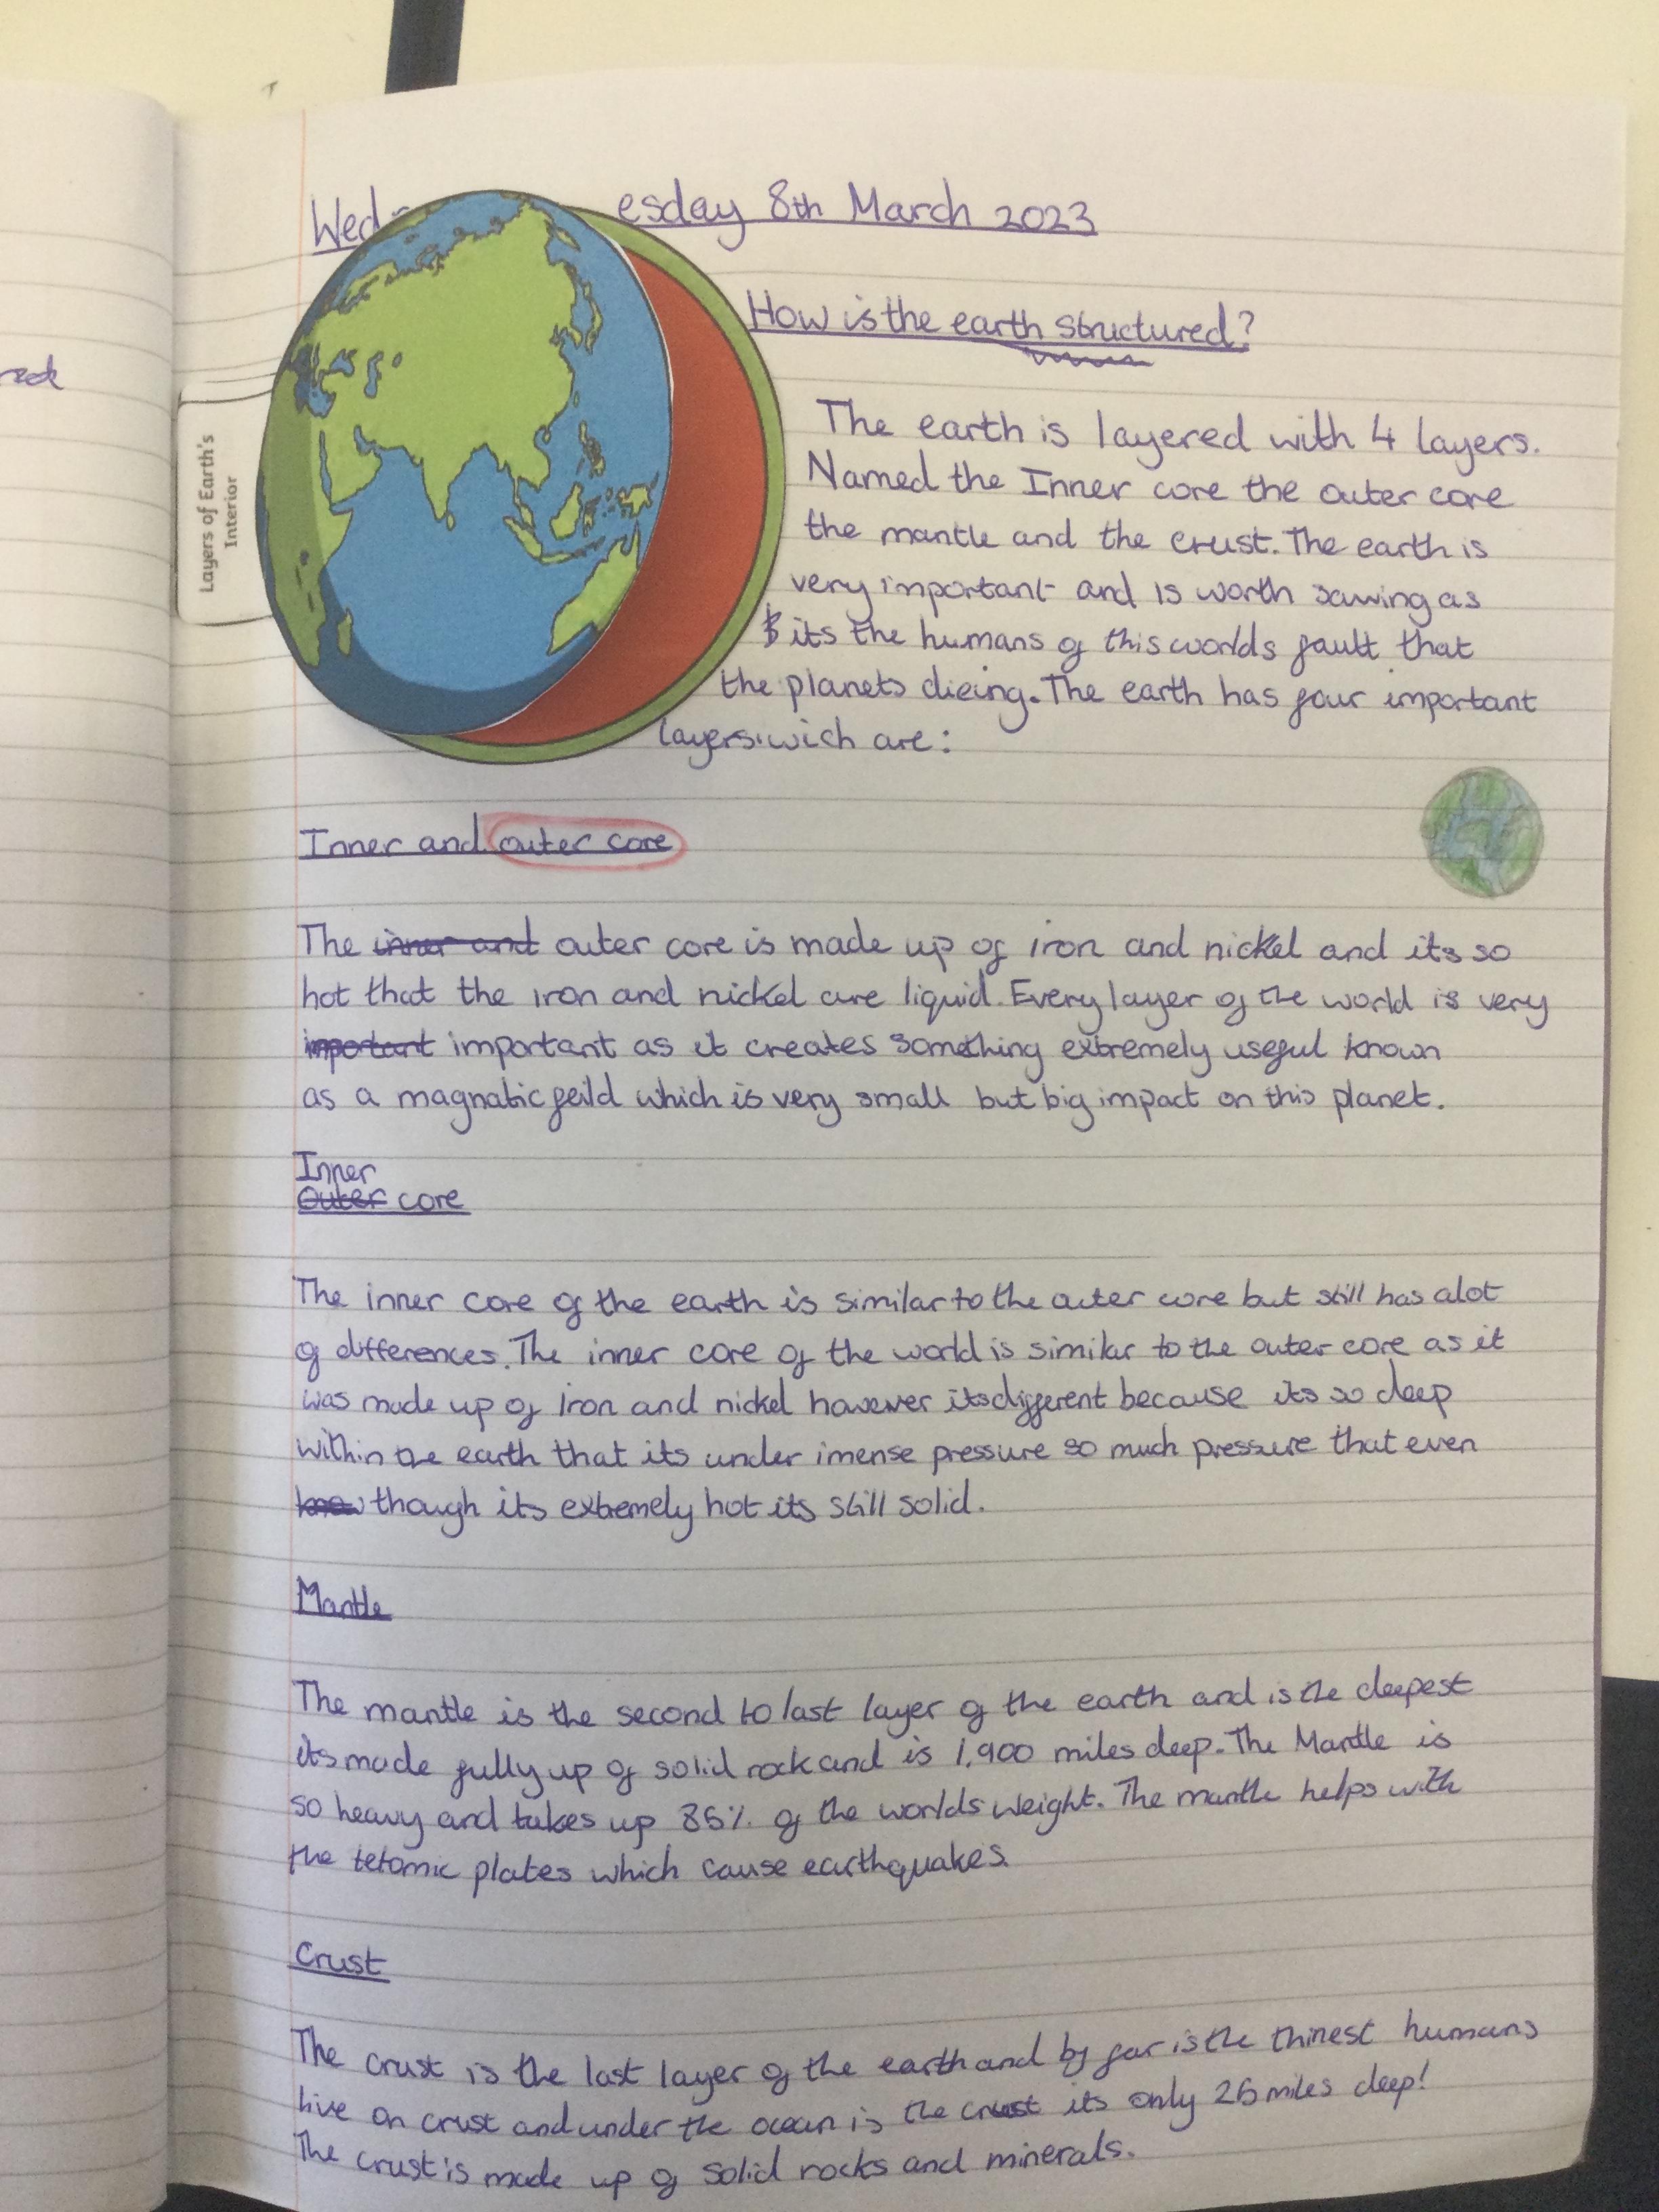 Wed esday 8th March 2023
How is the earth structured?
Layers of Earth's
Interior
The earth is layered with 4 layers.
Named the Inner core the outer core
the mantle and the crust. The earth is
very important and is worth sawing as
its the humans of this worlds fault that
the planets dieing. The earth has four important
layers. wich are:
Inner and outer core
The inner and outer core is made up of iron and nickel and its so
hot that the iron and nickel are liquid. Every layer of the world is very
important important as it creates something extremely useful known
as a magnatic feild which is very small but big impact on this planet.
Inner
Outer core
The inner core of the earth is similar to the outer core but still has alot
of differences. The inner core of the world is similar to the outer core as it
was made up of iron and nickel however its different because its so deep
within the earth that its under imense pressure so much pressure that even
though its extremely hot its still solid.
Mantle
The mantle is the second to last layer of the earth and is the deepest
its made fully up of solid rock and is 1,900 miles deep. The Mantle is
so heavy and takes up 85% of the worlds weight. The mantle helps with
the tetomic plates which cause earthquakes.
Crust
The crust is the last layer of the earth and by far is the thinest humans
live on crust and under the ocean is the crust its only 25 miles deep!
The crust is made up of solid rocks and minerals.